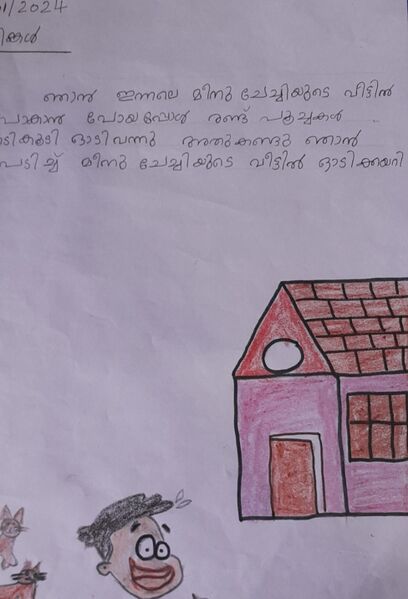 01/2024
ികൾ
ഞാൻ ഇന്നലെ മീനു ചേച്ചിയുടെ വീട്ടിൽ
പോകാൻ പോയപ്പോൾ രണ്ട് പൂച്ചകൾ
ടികൂടി ഓടിവന്നു അതുകണ്ടു ഞാൻ
പേടിച്ച് മീനു ചേച്ചിയുടെ വീട്ടിൽ ഓടിക്കയറി